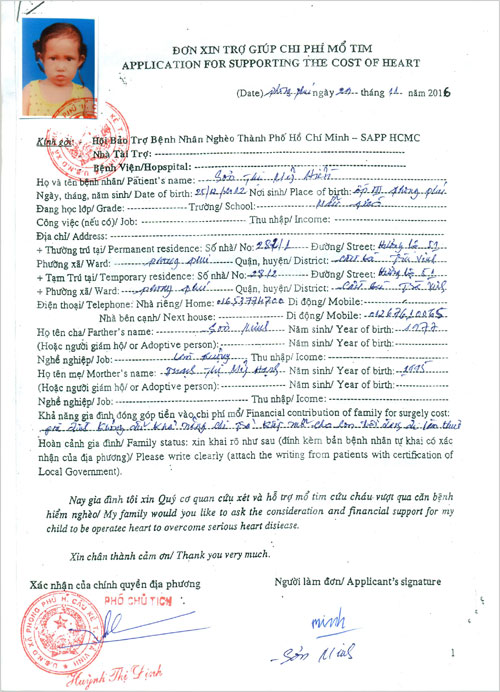 ĐƠN XIN TRỢ GIÚP CHI PHÍ MỔ TIM
APPLICATION FOR SUPPORTING THE COST OF HEART
(Date) phong phú ngày 20 tháng 11 năm 2016
Kính gởi: Hội Bảo Trợ Bệnh Nhân Nghèo Thành Phố Hồ Chí Minh – SAPP HCMC
Nhà Tài Trợ:
Bệnh Viện/Hopspital:
Họ và tên bệnh nhân/ Patient's name: Sơn Thị Mỹ Hiền
Ngày, tháng, năm sinh/ Date of birth: 25/12/2012 Nơi sinh/ Place of birth: phong phú
Đang học lớp/ Grade: Trường/ School: Mẫu giáo
Công việc (nếu có)/ Job: Thu nhập/ Income:
Địa chỉ/ Address:
+ Thường trú tại/ Permanent residence: Số nhà/ No: 282/1 Đường/ Street:
Phường xã/ Ward: phong phú Quận, huyện/ District: Cầu kè Trà Vinh
+ Tạm Trú tại/ Temporary residence: Số nhà/ No: Đường/ Street:
+ Phường xã/ Ward: phong phú Quận, huyện/ District: Cầu kè Trà Vinh
Điện thoại/ Telephone: Nhà riêng/ Home: 01653774700 Di động/ Mobile:
Nhà bên cạnh/ Next house: Di động/ Mobile: 01267610065
Họ tên cha/ Farther's name: Sơn Minh Năm sinh/ Year of birth: 1977
(Hoặc người giám hộ/ or Adoptive person): Năm sinh/ Year of birth:
Nghề nghiệp/ Job: Làm ruộng Thu nhập/ Icome:
Họ tên mẹ/ Morther's name: Thạch Thị Mỹ Hạnh Năm sinh/ Year of birth:
(Hoặc người giám hộ/ or Adoptive person): Năm sinh/ Year of birth:
Nghề nghiệp/ Job: Thu nhập/ Income:
Khả năng gia đình đóng góp tiền vào chi phí mổ/ Financial contribution of family for surgely cost:
gia đình không khả năng chi trả
Hoàn cảnh gia đình/ Family status: xin khai rõ như sau (đính kèm bản bệnh nhân tự khai có xác
nhận của địa phương)/ Please write clearly (attach the writing from patients with certification of
Local Government).
Nay gia đình tôi xin Quý cơ quan cứu xét và hỗ trợ mổ tim cứu cháu vượt qua căn bệnh
hiểm nghèo/ My family would you like to ask the consideration and financial support for my
child to be operatec heart to overcome serious heart disiease.
Xin chân thành cảm ơn/ Thank you very much.
Xác nhận của chính quyền địa phương
Người làm đơn/ Applicant's signature
PHÓ CHỦ TỊCH
minh
Sơn Minh
Huỳnh Thị Định
1